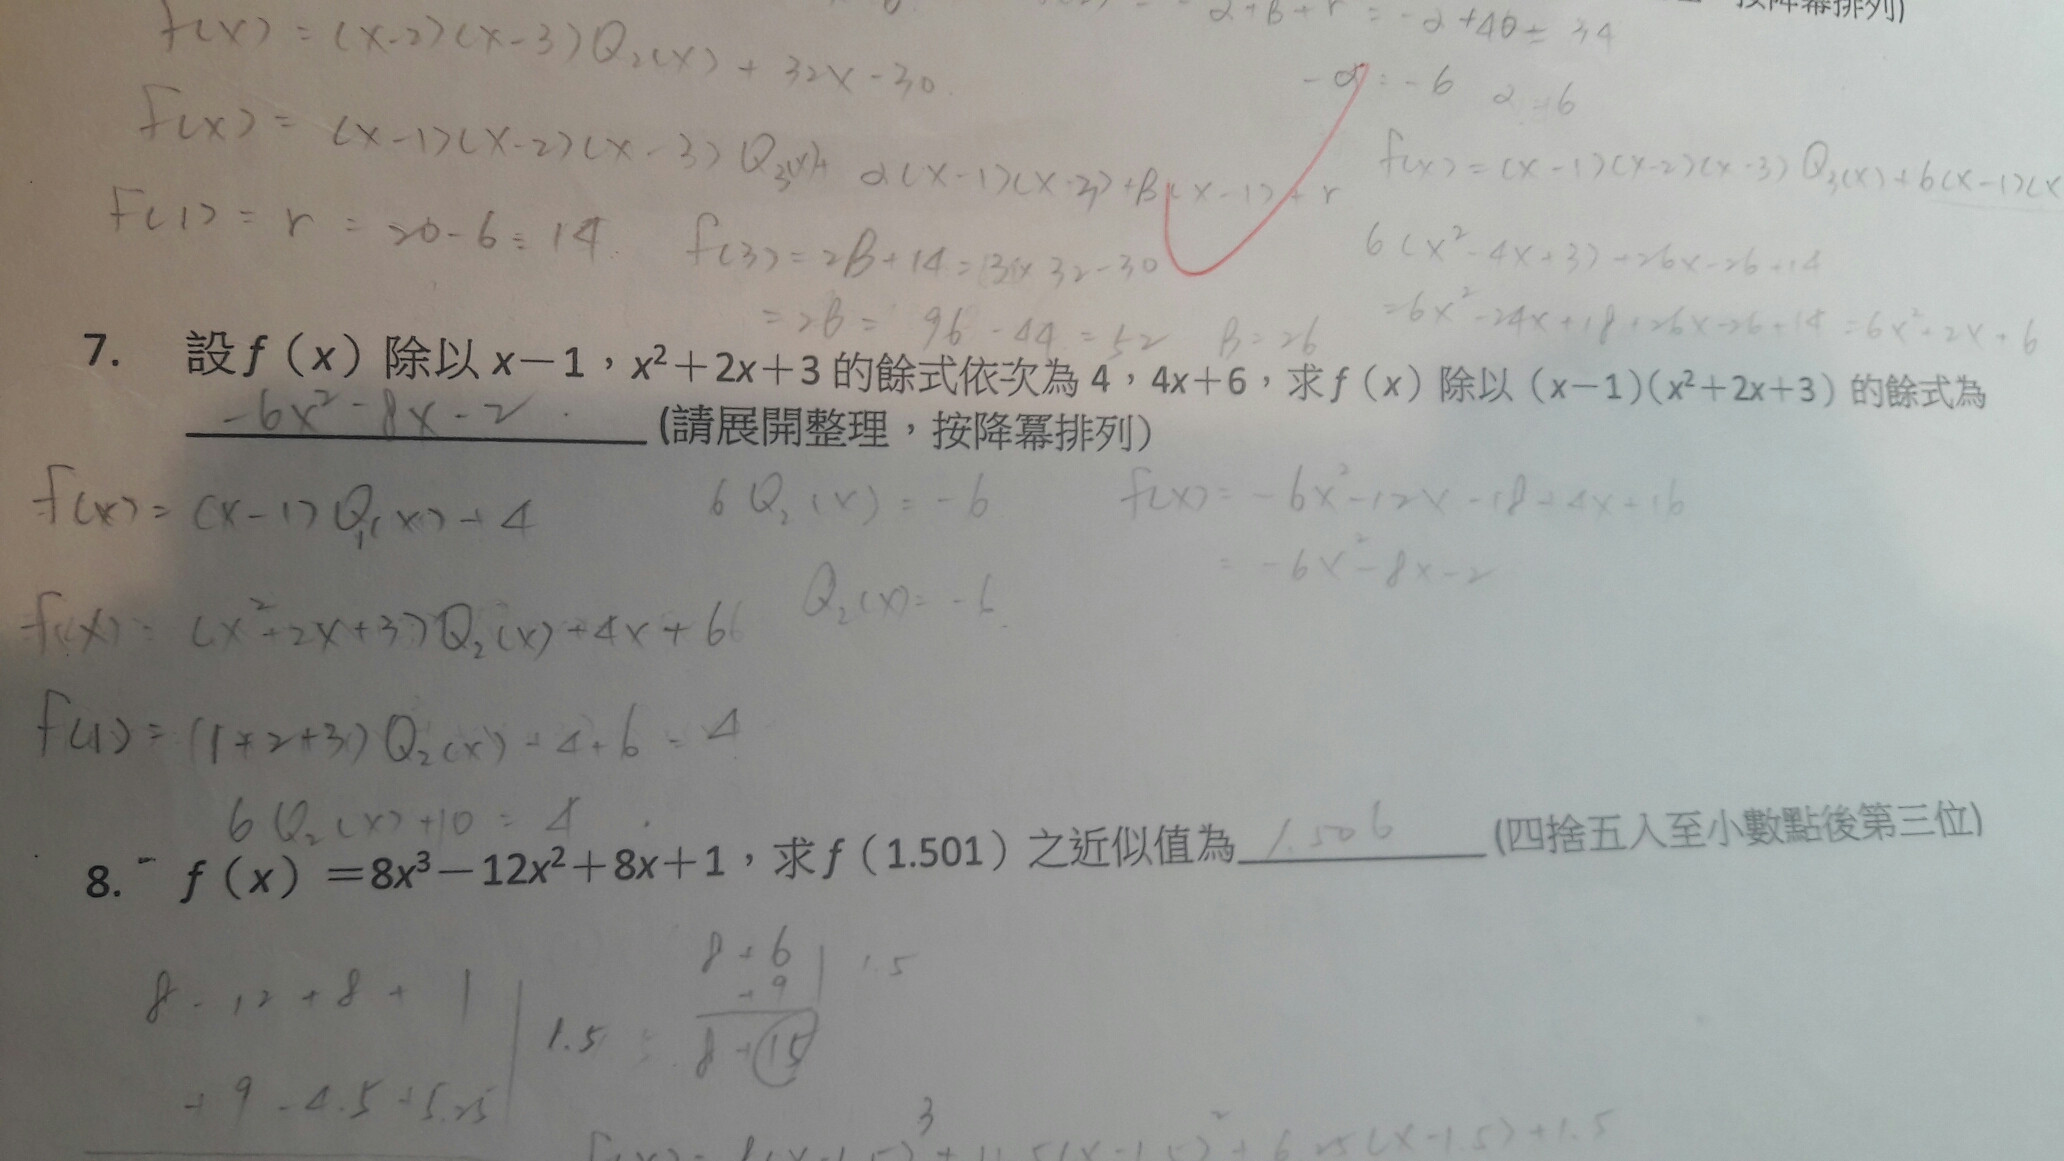 f(x) = (x-2)(x-3)Q₂(x) + 32x-30
-α = -6 α=6
f(x) = (x-1)(x-2)(x-3)Q₃(x)+ α(x-1)(x-3)+B(x-1)+r
f(x) = (x-1)(x-2)(x-3)Q₃(x)+6(x-1)(x
f(1) = r = 20-6 = 14
f(3) = 2B+14 = 3×32-30
6(x²-4x+3)+26x-26+14
= 2B = 96-44 = 52 B=26
=6x²-24x+18+26x-26+14 =6x²+2x+6
7. 設f(x)除以x-1,x²+2x+3的餘式依次為4,4x+6,求f(x)除以(x-1)(x²+2x+3)的餘式為
-6x²-8x-2 (請展開整理,按降冪排列)
f(x) = (x-1)Q₁(x)+4
6Q₂(x) = -6
f(x) = -6x²-12x-18+4x+16
= -6x²-8x-2
f(x) = (x²+2x+3)Q₂(x)+4x+6
Q₂(x) = -6
f(1) = (1+2+3)Q₂(x)+4+6 = 4
6Q₂(x)+10 = 4
8. f(x)=8x³-12x²+8x+1,求f(1.501)之近似值為 1.506 (四捨五入至小數點後第三位)
8+6 | 1.5
+9
8-12+8+1 | 1.5
8+15
+9-4.5+5.25